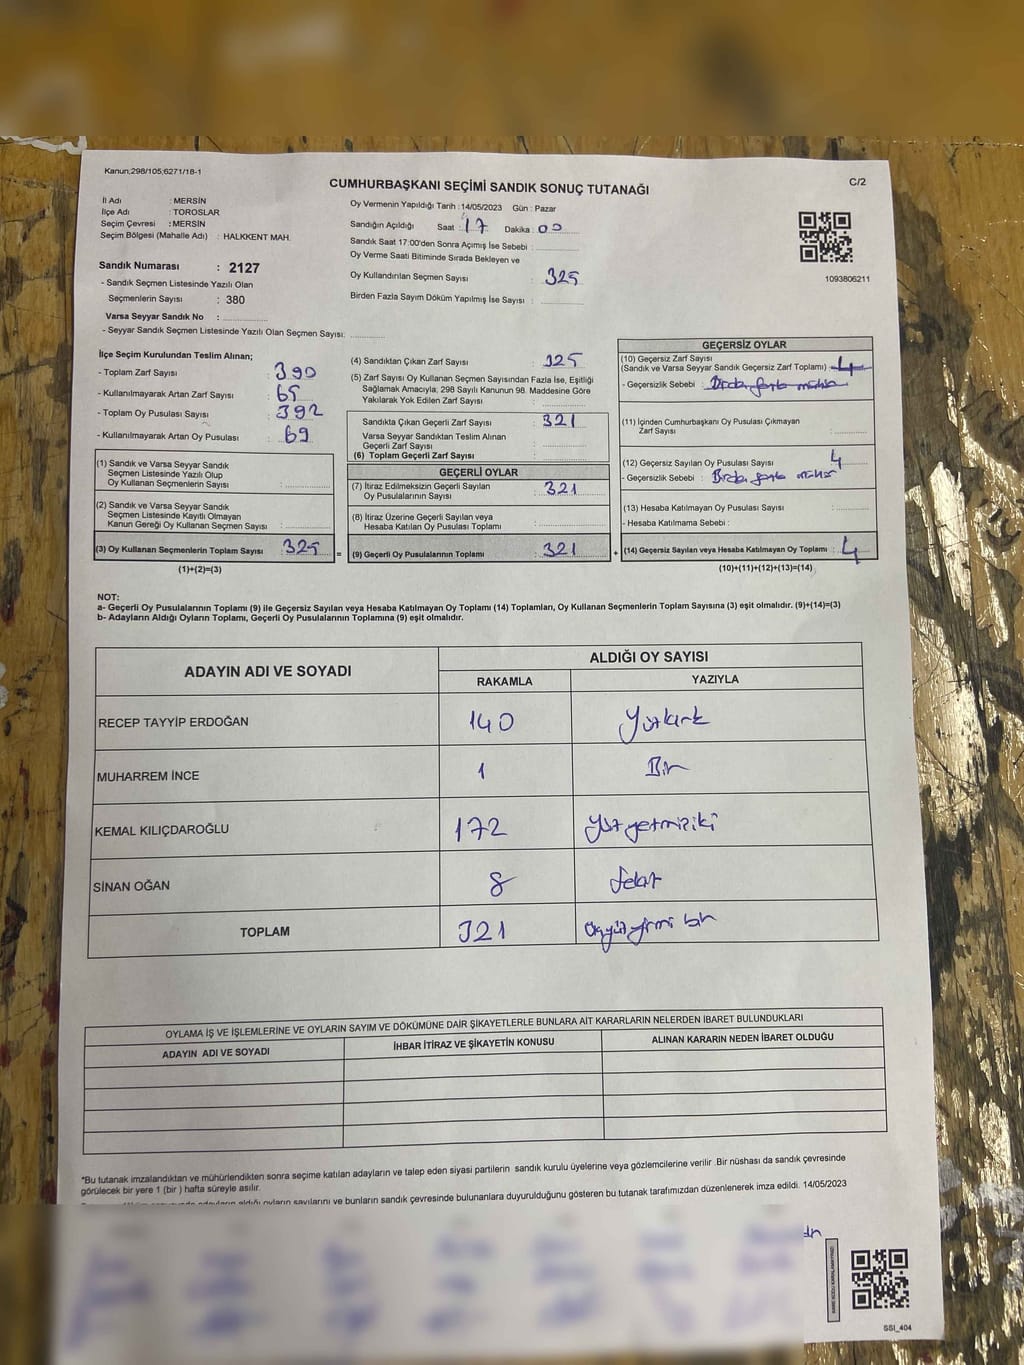 Kanun;298/105;6271/18-1
CUMHURBAŞKANI SEÇİMİ SANDIK SONUÇ TUTANAĞI
C/2
İl Adı : MERSİN
İlçe Adı : TOROSLAR
Seçim Çevresi : MERSİN
Seçim Bölgesi (Mahalle Adı) : HALKKENT MAH.
Sandık Numarası : 2127
- Sandık Seçmen Listesinde Yazılı Olan
Seçmenlerin Sayısı : 380
Varsa Seyyar Sandık No :
- Seyyar Sandık Seçmen Listesinde Yazılı Olan Seçmen Sayısı:
Oy Vermenin Yapıldığı Tarih : 14/05/2023 Gün : Pazar
Sandığın Açıldığı Saat : 17 Dakika : 00
Sandık Saat 17:00'den Sonra Açımış İse Sebebi :
Oy Verme Saati Bitiminde Sırada Bekleyen ve
Oy Kullandırılan Seçmen Sayısı : 325
Birden Fazla Sayım Döküm Yapılmış İse Sayısı :
1093806211
İlçe Seçim Kurulundan Teslim Alınan;
- Toplam Zarf Sayısı : 390
- Kullanılmayarak Artan Zarf Sayısı : 65
- Toplam Oy Pusulası Sayısı : 392
- Kullanılmayarak Artan Oy Pusulası : 69
(1) Sandık ve Varsa Seyyar Sandık
Seçmen Listesinde Yazılı Olup
Oy Kullanan Seçmenlerin Sayısı :
(2) Sandık ve Varsa Seyyar Sandık
Seçmen Listesinde Kayıtlı Olmayan
Kanun Gereği Oy Kullanan Seçmen Sayısı :
(3) Oy Kullanan Seçmenlerin Toplam Sayısı : 325 =
(1)+(2)=(3)
(4) Sandıktan Çıkan Zarf Sayısı : 325
(5) Zarf Sayısı Oy Kullanan Seçmen Sayısından Fazla İse, Eşitliği
Sağlamak Amacıyla; 298 Sayılı Kanunun 98. Maddesine Göre
Yakılarak Yok Edilen Zarf Sayısı :
Sandıkta Çıkan Geçerli Zarf Sayısı : 321
Varsa Seyyar Sandıktan Teslim Alınan
Geçerli Zarf Sayısı :
(6) Toplam Geçerli Zarf Sayısı :
GEÇERLİ OYLAR
(7) İtiraz Edilmeksizin Geçerli Sayılan
Oy Pusulalarının Sayısı : 321
(8) İtiraz Üzerine Geçerli Sayılan veya
Hesaba Katılan Oy Pusulası Toplamı :
(9) Geçerli Oy Pusulalarının Toplamı : 321 +
GEÇERSİZ OYLAR
(10) Geçersiz Zarf Sayısı
(Sandık ve Varsa Seyyar Sandık Geçersiz Zarf Toplamı) : 4
- Geçersizlik Sebebi : Birden fazla mühür
(11) İçinden Cumhurbaşkanı Oy Pusulası Çıkmayan
Zarf Sayısı :
(12) Geçersiz Sayılan Oy Pusulası Sayısı : 4
- Geçersizlik Sebebi : Birden fazla mühür
(13) Hesaba Katılmayan Oy Pusulası Sayısı :
- Hesaba Katılmama Sebebi :
(14) Geçersiz Sayılan veya Hesaba Katılmayan Oy Toplamı : 4
(10)+(11)+(12)+(13)=(14)
NOT:
a- Geçerli Oy Pusulalarının Toplamı (9) ile Geçersiz Sayılan veya Hesaba Katılmayan Oy Toplamı (14) Toplamları, Oy Kullanan Seçmenlerin Toplam Sayısına (3) eşit olmalıdır. (9)+(14)=(3)
b- Adayların Aldığı Oyların Toplamı, Geçerli Oy Pusulalarının Toplamına (9) eşit olmalıdır.
ADAYIN ADI VE SOYADI ALDIĞI OY SAYISI
RAKAMLA YAZIYLA
RECEP TAYYİP ERDOĞAN 140 Yüzkırk
MUHARREM İNCE 1 Bir
KEMAL KILIÇDAROĞLU 172 Yüzyetmişiki
SİNAN OĞAN 8 Sekiz
TOPLAM 321 Üçyüzyirmi bir
OYLAMA İŞ VE İŞLEMLERİNE VE OYLARIN SAYIM VE DÖKÜMÜNE DAİR ŞİKAYETLERLE BUNLARA AİT KARARLARIN NELERDEN İBARET BULUNDUKLARI
ADAYIN ADI VE SOYADI İHBAR İTİRAZ VE ŞİKAYETİN KONUSU ALINAN KARARIN NEDEN İBARET OLDUĞU
*Bu tutanak imzalandıktan ve mühürlendikten sonra seçime katılan adayların ve talep eden siyasi partilerin sandık kurulu üyelerine veya gözlemcilerine verilir .Bir nüshası da sandık çevresinde
görülecek bir yere 1 (bir ) hafta süreyle asılır.
aldığı oyların sayılarını ve bunların sandık çevresinde bulunanlara duyurulduğunu gösteren bu tutanak tarafımızdan düzenlenerek imza edildi. 14/05/2023
SSI_404